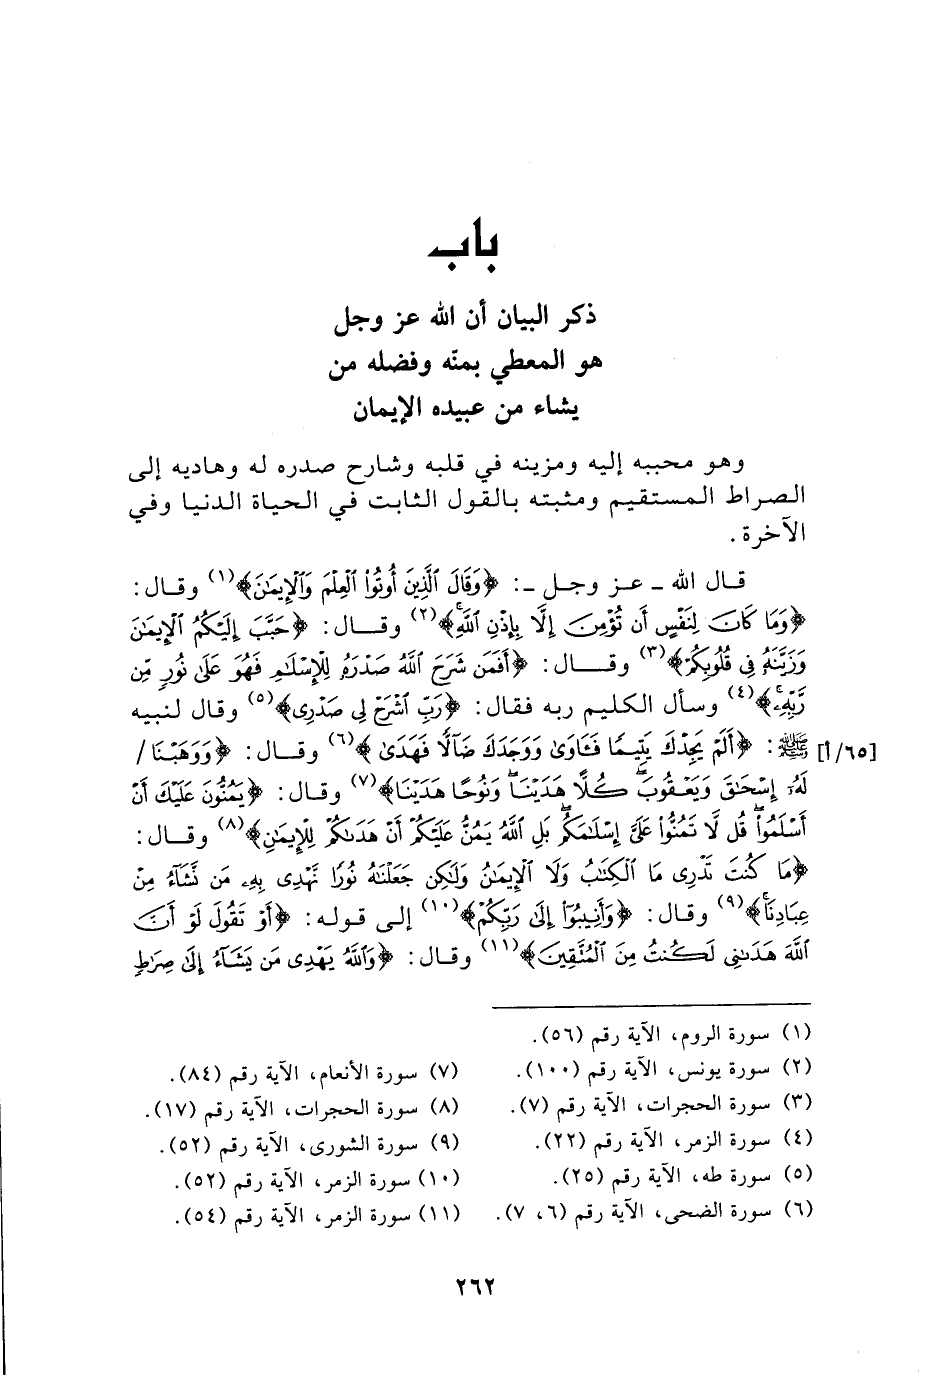 باب
ذكر البيان أن الله عز وجل
هو المعطي بمنّه وفضله من
يشاء من عبيده الإيمان
وهو محببه إليه ومزينه في قلبه وشارح صدره له وهاديه إلى
الصراط المستقيم ومثبته بالقول الثابت في الحياة الدنيا وفي
الآخرة .
قال الله ـ عز وجل ـ: ﴿وَقَالَ ٱلَّذِينَ أُوتُوا۟ ٱلْعِلْمَ وَٱلْإِيمَـٰنَ﴾(١) وقال:
﴿وَمَا كَانَ لِنَفْسٍ أَن تُؤْمِنَ إِلَّا بِإِذْنِ ٱللَّهِ﴾(٢) وقال: ﴿حَبَّبَ إِلَيْكُمُ ٱلْإِيمَـٰنَ
وَزَيَّنَهُۥ فِى قُلُوبِكُمْ﴾(٣) وقال: ﴿أَفَمَن شَرَحَ ٱللَّهُ صَدْرَهُۥ لِلْإِسْلَـٰمِ فَهُوَ عَلَىٰ نُورٍ مِّن
رَّبِّهِۦ﴾(٤) وسأل الكليم ربه فقال: ﴿رَبِّ ٱشْرَحْ لِى صَدْرِى﴾(٥) وقال لنبيه
ﷺ: ﴿أَلَمْ يَجِدْكَ يَتِيمًا فَـَٔاوَىٰ وَوَجَدَكَ ضَآلًّا فَهَدَىٰ﴾(٦) وقال: ﴿وَوَهَبْنَا / [٦٥/أ]
لَهُۥٓ إِسْحَـٰقَ وَيَعْقُوبَ ۚ كُلًّا هَدَيْنَا ۚ وَنُوحًا هَدَيْنَا﴾(٧) وقال: ﴿يَمُنُّونَ عَلَيْكَ أَنْ
أَسْلَمُوا۟ ۖ قُل لَّا تَمُنُّوا۟ عَلَىَّ إِسْلَـٰمَكُم ۖ بَلِ ٱللَّهُ يَمُنُّ عَلَيْكُمْ أَنْ هَدَىٰكُمْ لِلْإِيمَـٰنِ﴾(٨) وقال:
﴿مَا كُنتَ تَدْرِى مَا ٱلْكِتَـٰبُ وَلَا ٱلْإِيمَـٰنُ وَلَـٰكِن جَعَلْنَـٰهُ نُورًا نَّهْدِى بِهِۦ مَن نَّشَآءُ مِنْ
عِبَادِنَا ۚ﴾(٩) وقال: ﴿وَأَنِيبُوٓا۟ إِلَىٰ رَبِّكُمْ﴾(١٠) إلى قوله: ﴿أَوْ تَقُولَ لَوْ أَنَّ
ٱللَّهَ هَدَىٰنِى لَكُنتُ مِنَ ٱلْمُتَّقِينَ﴾(١١) وقال: ﴿وَٱللَّهُ يَهْدِى مَن يَشَآءُ إِلَىٰ صِرَٰطٍ
(١) سورة الروم، الآية رقم (٥٦).
(٢) سورة يونس، الآية رقم (١٠٠).
(٣) سورة الحجرات، الآية رقم (٧).
(٤) سورة الزمر، الآية رقم (٢٢).
(٥) سورة طه، الآية رقم (٢٥).
(٦) سورة الضحى، الآية رقم (٦، ٧).
(٧) سورة الأنعام، الآية رقم (٨٤).
(٨) سورة الحجرات، الآية رقم (١٧).
(٩) سورة الشورى، الآية رقم (٥٢).
(١٠) سورة الزمر، الآية رقم (٥٢).
(١١) سورة الزمر، الآية رقم (٥٤).
٢٦٢